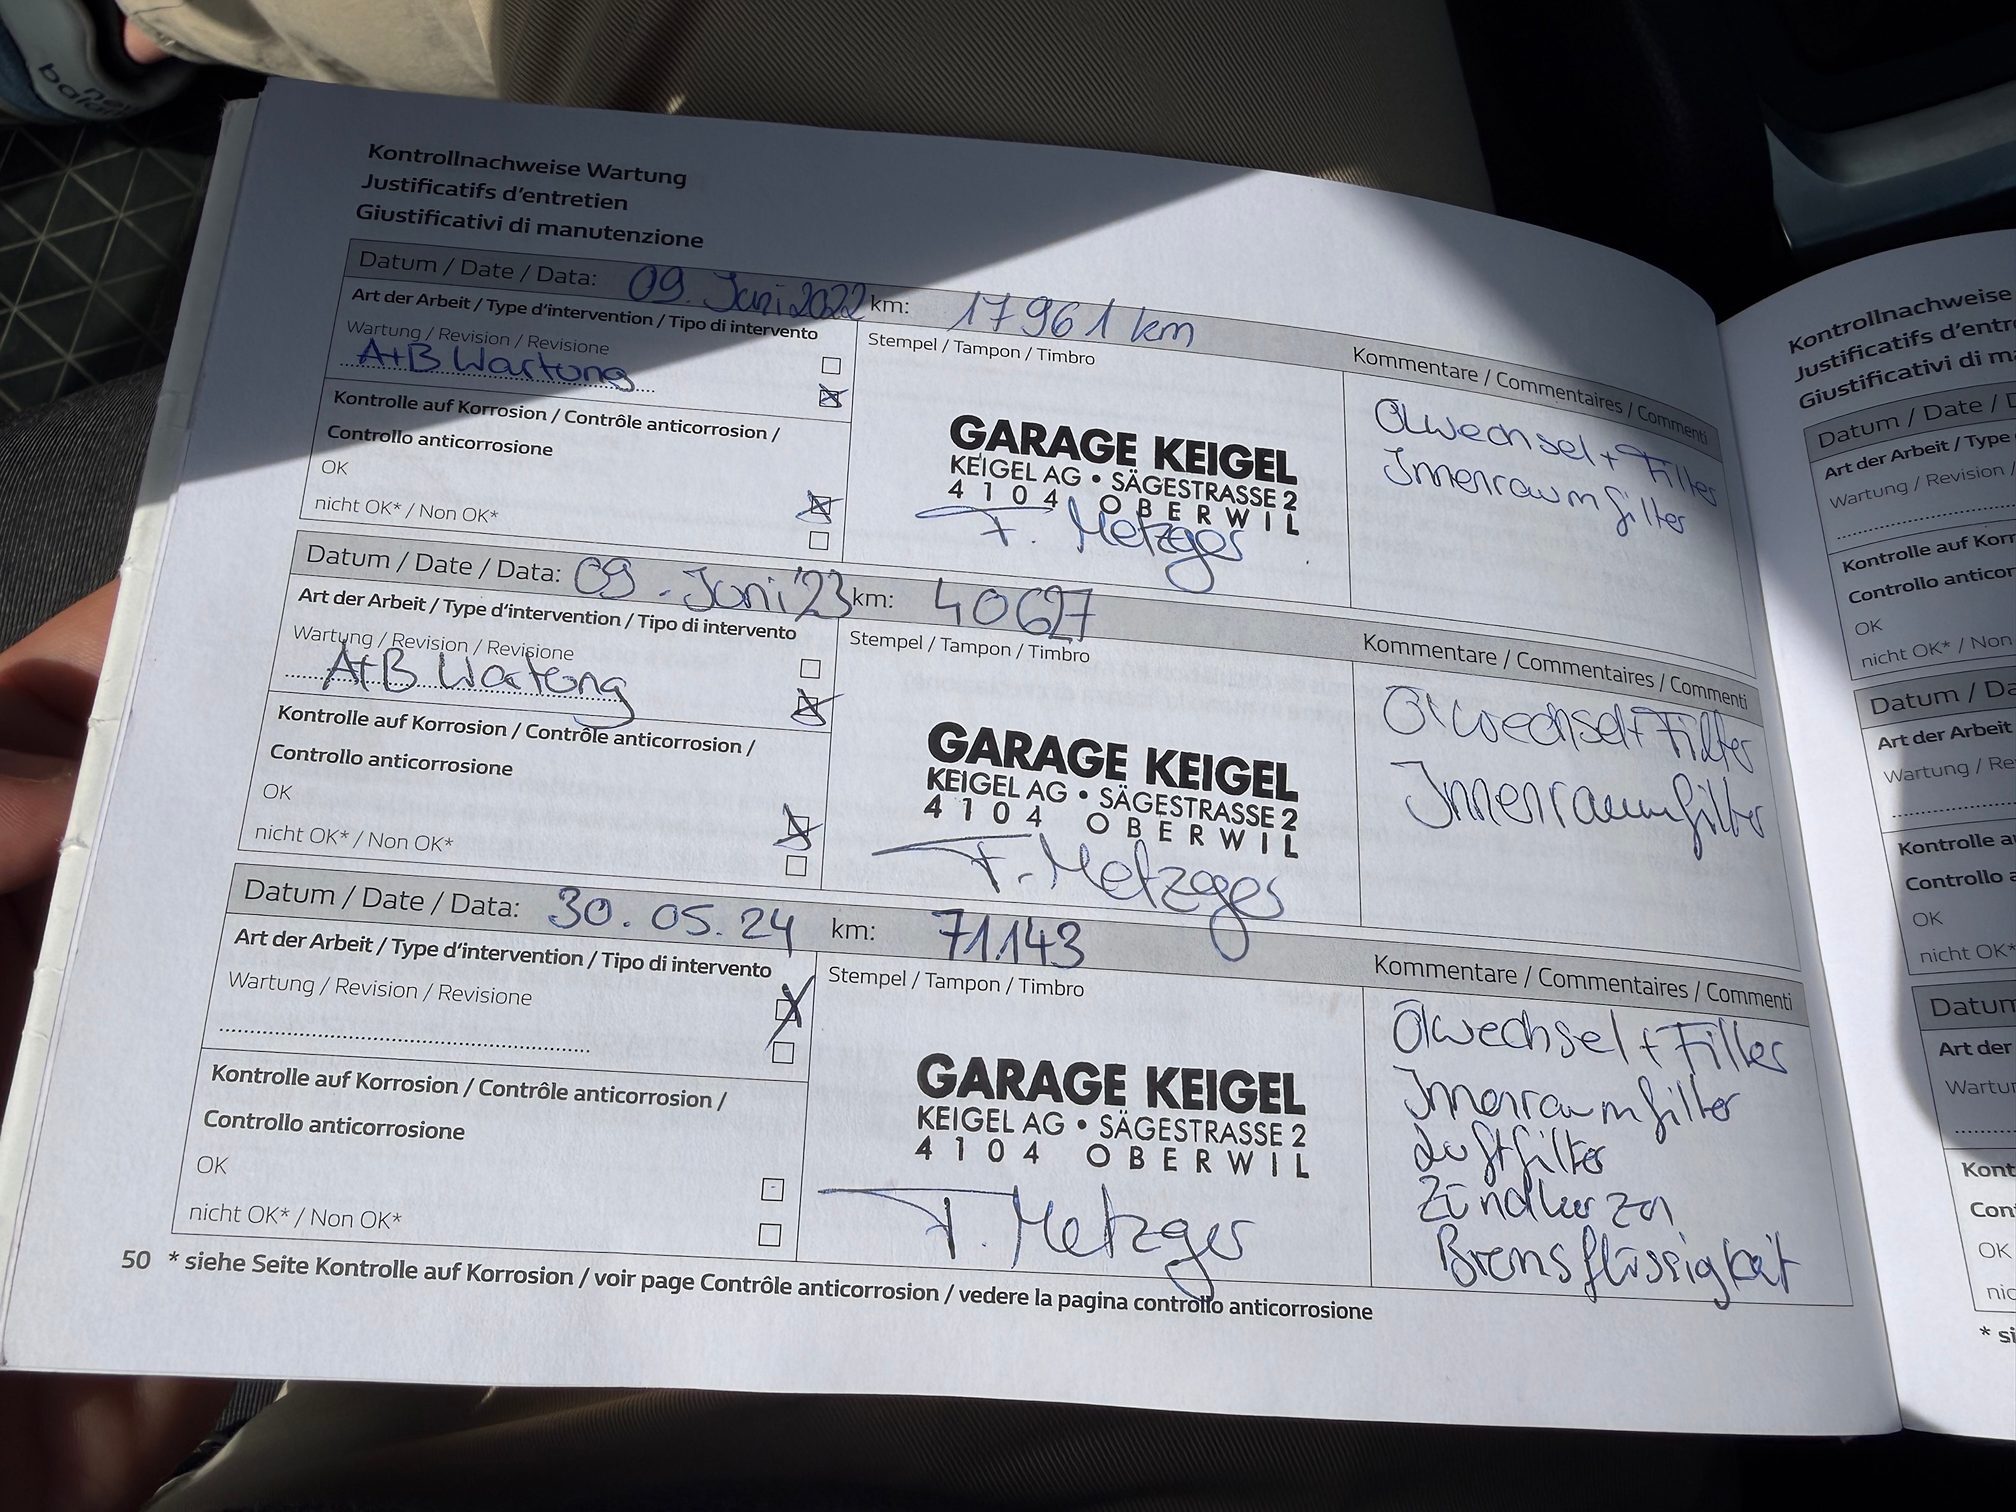 new
balance
Kontrollnachweise Wartung
Justificatifs d'entretien
Giustificativi di manutenzione
Datum / Date / Data: 09. Juni 2022 km: 17961 km
Art der Arbeit / Type d'intervention / Tipo di intervento
Wartung / Revision / Revisione
A+B Wartung
Kontrolle auf Korrosion / Contrôle anticorrosion /
Controllo anticorrosione
OK
nicht OK* / Non OK*
Stempel / Tampon / Timbro
GARAGE KEIGEL
KEIGEL AG • SÄGESTRASSE 2
4104 OBERWIL
F. Metzger
Kommentare / Commentaires / Commenti
Ölwechsel + Filter
Innenraumfilter
Datum / Date / Data: 09. Juni '23 km: 40627
Art der Arbeit / Type d'intervention / Tipo di intervento
Wartung / Revision / Revisione
A+B Wartung
Kontrolle auf Korrosion / Contrôle anticorrosion /
Controllo anticorrosione
OK
nicht OK* / Non OK*
Stempel / Tampon / Timbro
GARAGE KEIGEL
KEIGEL AG • SÄGESTRASSE 2
4104 OBERWIL
F. Metzger
Kommentare / Commentaires / Commenti
Ölwechsel + Filter
Innenraumfilter
Datum / Date / Data: 30.05.24 km: 71.143
Art der Arbeit / Type d'intervention / Tipo di intervento
Wartung / Revision / Revisione
Kontrolle auf Korrosion / Contrôle anticorrosion /
Controllo anticorrosione
OK
nicht OK* / Non OK*
Stempel / Tampon / Timbro
GARAGE KEIGEL
KEIGEL AG • SÄGESTRASSE 2
4104 OBERWIL
F. Metzger
Kommentare / Commentaires / Commenti
Ölwechsel + Filter
Innenraumfilter
Luftfilter
Zündkerzen
Bremsflüssigkeit
50 * siehe Seite Kontrolle auf Korrosion / voir page Contrôle anticorrosion / vedere la pagina controllo anticorrosione
Kontrollnachweise
Justificatifs
Giustificativi di
Datum / Date /
Art der Arbeit / Type
Wartung / Revision /
Kontrolle auf
Controllo
OK
nicht OK* / Non
Datum /
Art der Arbeit
Wartung /
Kontrolle
Controllo
OK
nicht OK*
Datum
Art der
OK
*